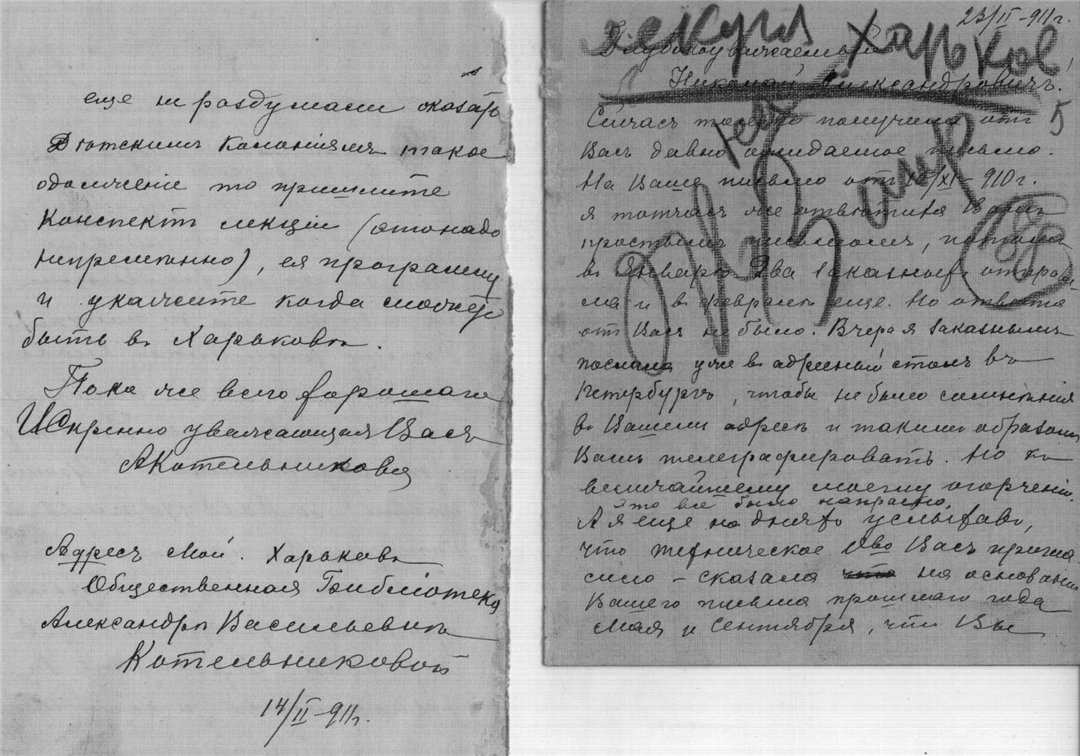 еще не раздумали оказать
Детскимъ Колоніямъ такое
одолженіе то пришлите
Конспектъ лекціи (это надо
непременно), ея программу
и укажите когда можете
быть въ Харькове.
Пока же всего хорошаго
Искренно уважающая Васъ
АКотельникова
Адресъ Мой. Харьковъ
Общественная Библіотека
Александре Васильевне
Котельниковой
14/II–911г.
23/II–911г.
лекція Харьков
Глубокоуважаемый
Николай Александровичъ.
5
Сейчасъ только получила отъ
Васъ давно ожидаемое письмо.
На Ваше письмо от /XI–910г.
я тотчасъ же ответила
простымъ письмомъ, потомъ
въ Январе два заказныхъ отправи
ла и въ феврале еще. Но ответа
отъ Васъ не было. Вчера я заказнымъ
послала уже въ адресный столъ въ
Петербургъ, чтобы не было сомненія
въ Вашемъ адресе и такимъ образомъ
Вамъ телеграфировать. Но къ
величайшему моему огорченію.
это все было напрасно,
А я еще на дняхъ услыхавъ,
что техническое Общво Васъ пригла
сило – сказала что на основаніи
Вашего письма прошлаго года
Мая и Сентября, что Вы